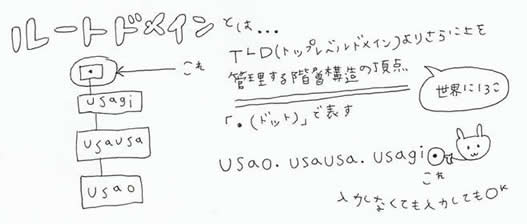 ルートドメインとは…
TLD(トップレベルドメイン)よりさらに上を
管理する階層構造の頂点
これ
usagi
usausa
usao
「.(ドット)」で表す
世界に13こ
usao.usausa.usagi.
これ
入力しなくても入力してもOK